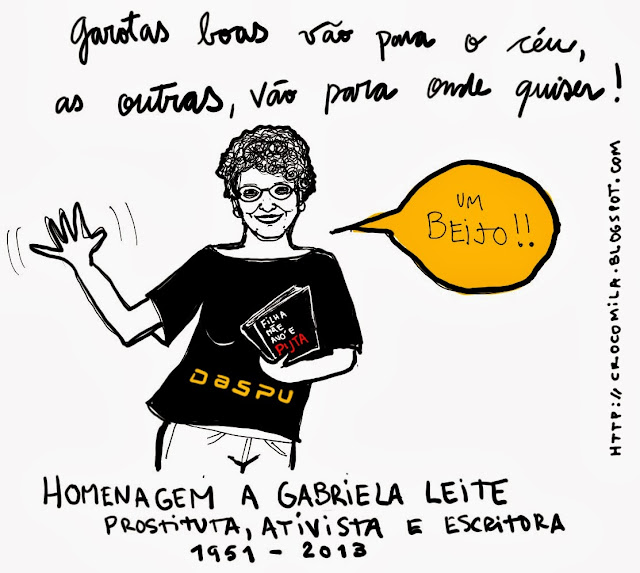 garotas boas vão para o céu,
as outras, vão para onde quiser!
UM
BEIJO!!
FILHA
MÃE
AVÓ E
PUTA
DASPU
HTTP://CROCOMILA.BLOGSPOT.COM
HOMENAGEM A GABRIELA LEITE
PROSTITUTA, ATIVISTA E ESCRITORA
1951 - 2013